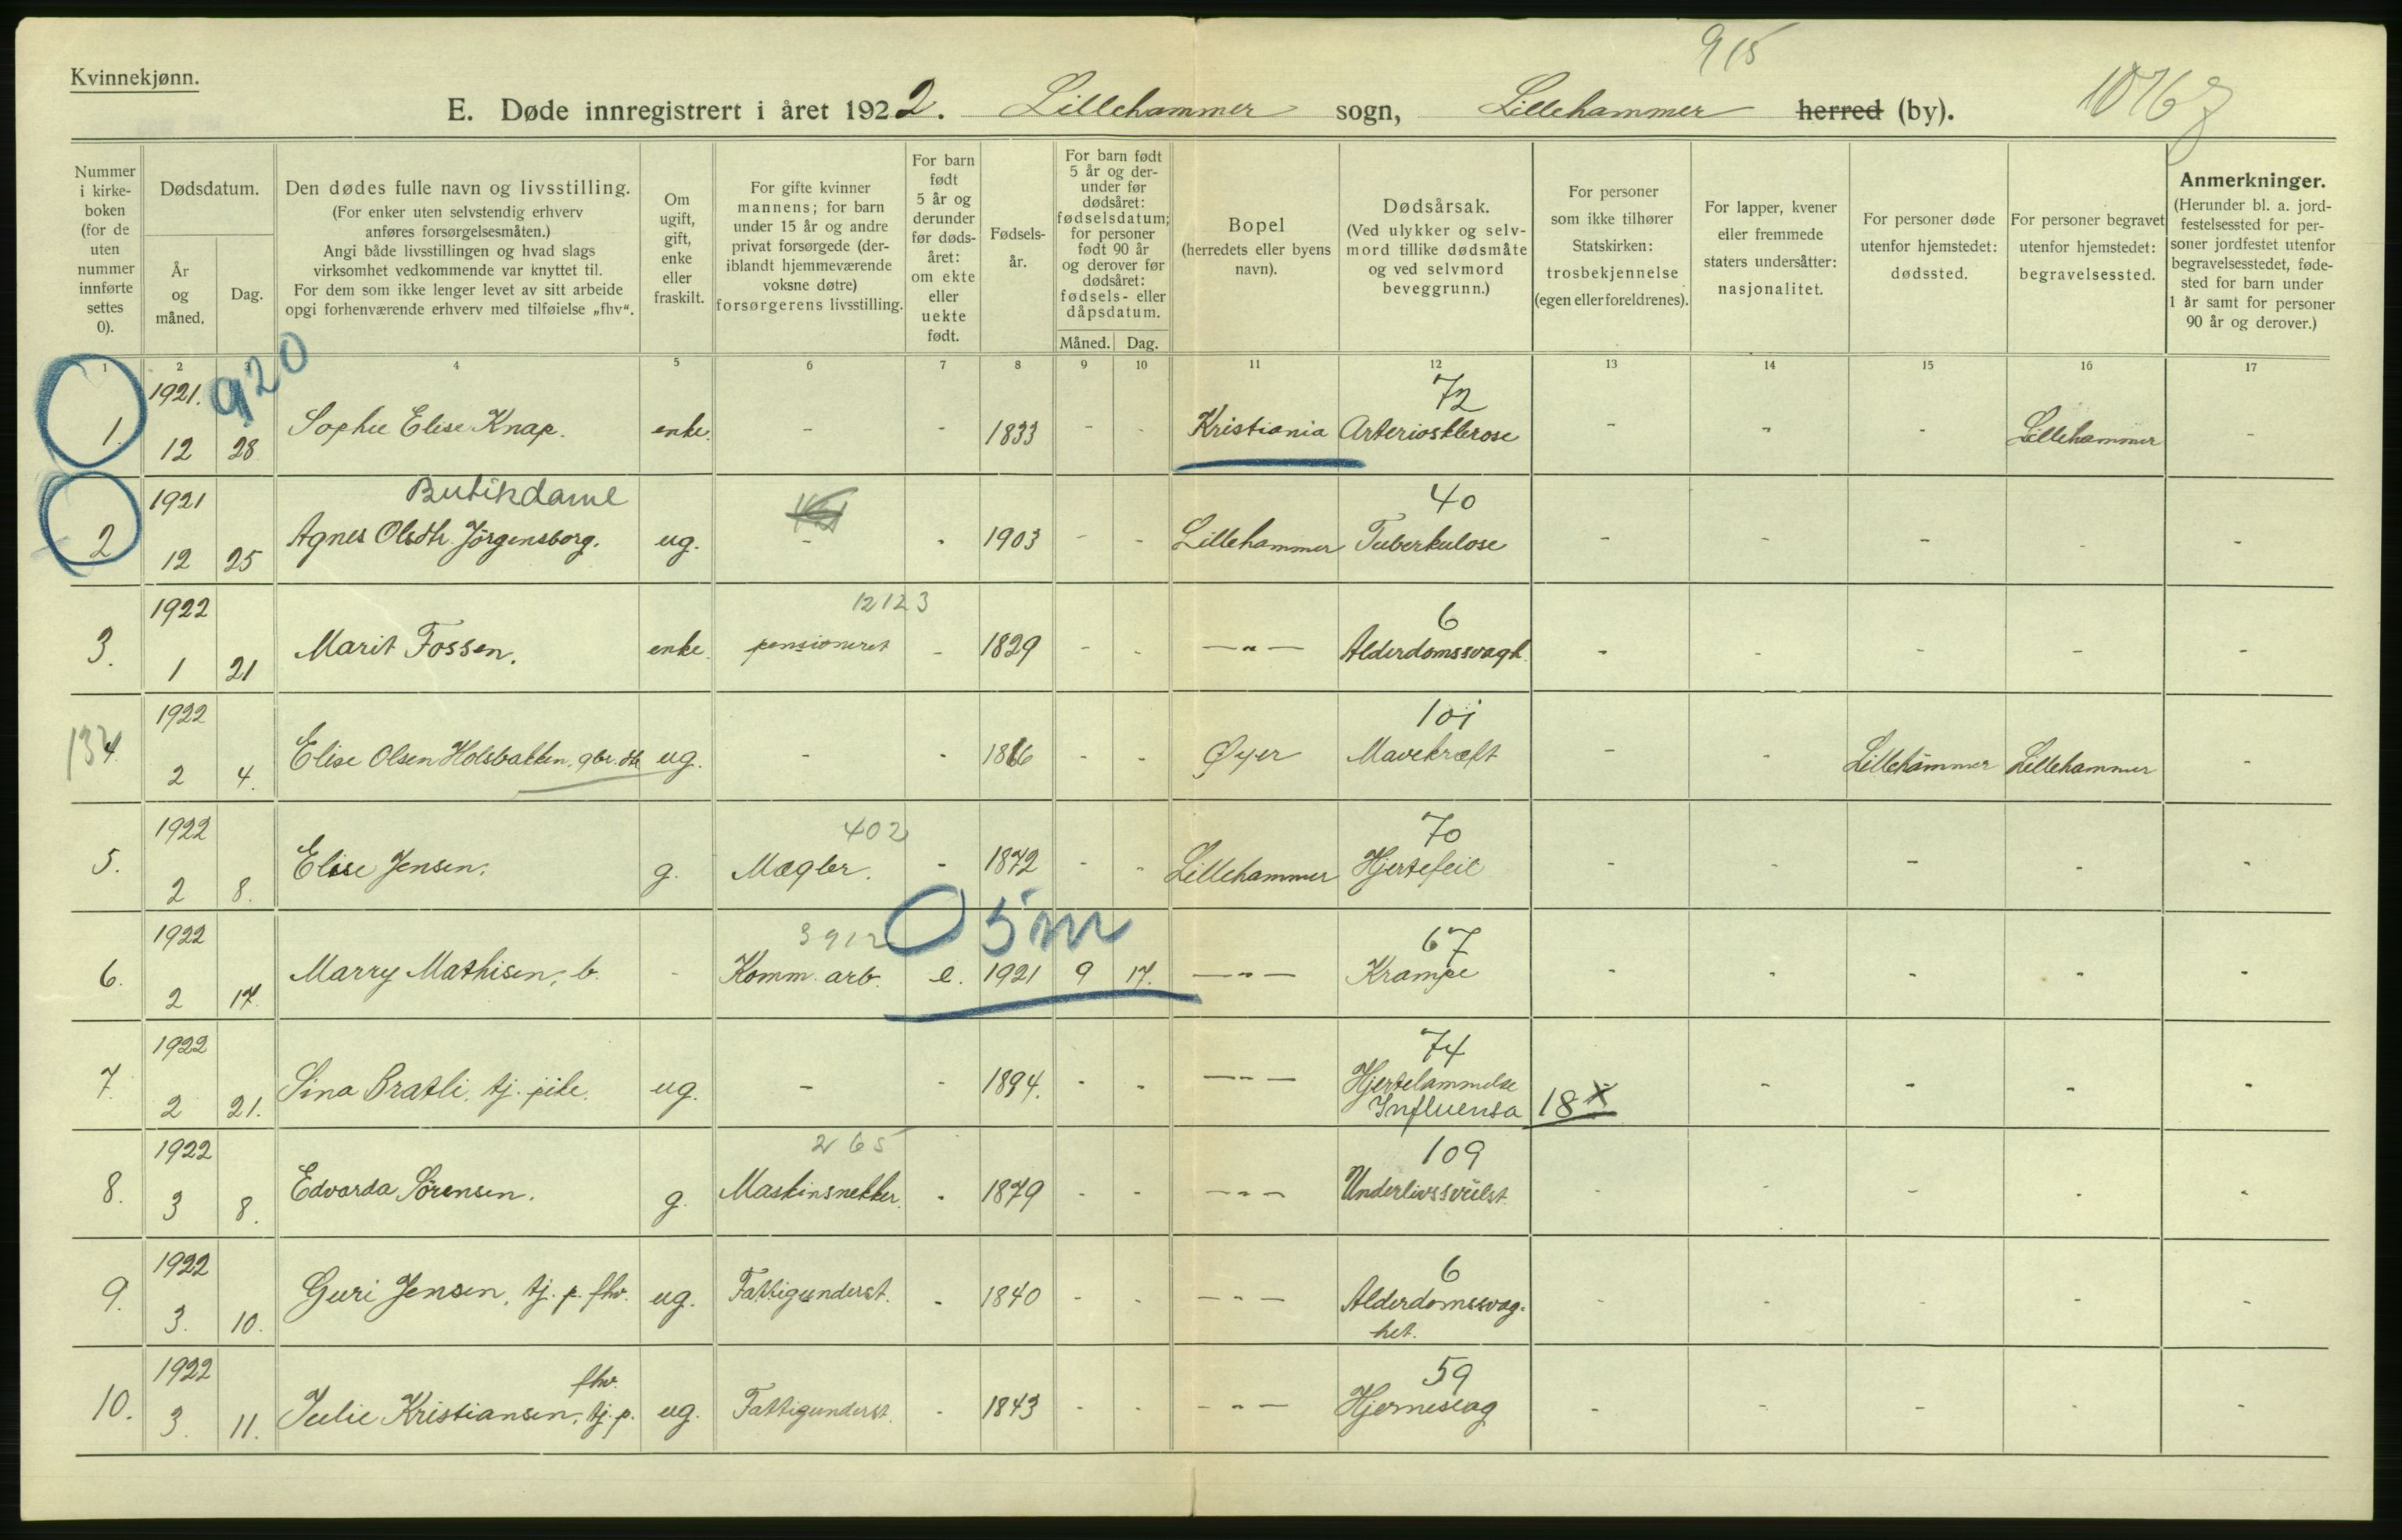 Kvinnekjønn.
915
1076
E. Døde innregistrert i året 1922. Lillehammer sogn, Lillehammer herred (by).
Nummer
i kirke-
boken
(for de
uten
nummer
innførte
settes
0).
Dødsdatum.
År
og
måned.
Dag.
Den dødes fulle navn og livsstilling.
(For enker uten selvstendig erhverv
anføres forsørgelsesmåten.)
Angi både livsstillingen og hvad slags
virksomhet vedkommende var knyttet til.
For dem som ikke lenger levet av sitt arbeide
opgi forhenværende erhverv med tilføielse „fhv“.
Om
ugift,
gift,
enke
eller
fraskilt.
For gifte kvinner
mannens; for barn
under 15 år og andre
privat forsørgede (der-
iblandt hjemmeværende
voksne døtre)
forsørgerens livsstilling.
For barn
født
5 år og
derunder
før døds-
året:
om ekte
eller
uekte
født.
Fødsels-
år.
For barn født
5 år og der-
under før
dødsåret:
fødselsdatum;
for personer
født 90 år
og derover før
dødsåret:
fødsels- eller
dåpsdatum.
Måned. Dag.
Bopel
(herredets eller byens
navn).
Dødsårsak.
(Ved ulykker og selv-
mord tillike dødsmåte
og ved selvmord
beveggrunn.)
For personer
som ikke tilhører
Statskirken:
trosbekjennelse
(egen eller foreldrenes).
For lapper, kvener
eller fremmede
staters undersåtter:
nasjonalitet.
For personer døde
utenfor hjemstedet:
dødssted.
For personer begravet
utenfor hjemstedet:
begravelsessted.
Anmerkninger.
(Herunder bl. a. jord-
festelsessted for per-
soner jordfestet utenfor
begravelsesstedet, føde-
sted for barn under
1 år samt for personer
90 år og derover.)
1 2 3 4 5 6 7 8 9 10 11 12 13 14 15 16 17
1921. 920 72
1. 12 28 Sophie Elise Knap. enke. - - 1833 - - Kristiania Arteriosklerose - " - Lillehammer -
1921 Butikdame 40
2 12 25 Agnes Olsdtr. Jörgensborg. ug. - - 1903 - - Lillehammer Tuberkulose - - - - -
1922 12123 6
3. 1 21 Marit Fossen. enke. pensioneret - 1829 - - —"— Alderdomssvagh. - - - - -
1922 101
134. 2 4. Elise Olsen Holsbakken, gbr. dtr ug. - - 1866 - - Øyer Mavekræft - - Lillehammer Lillehammer -
1922 402 70
5. 2 8. Elise Jensen. g. Mægler. - 1872 - - Lillehammer Hjertefeil - - - - -
1922 3912 0 5 m 67
6. 2 17. Marry Mathisen, b. - Komm. arb. e. 1921 9 17. —"— Krampe - - - - -
1922 74
7. 2 21. Sina Bratli, tj. pike. ug. - - 1894. - - —"— Hjertelammelse
Influensa 18 x - - - -
1922 265 109
8. 3 8. Edvarda Sörensen. g. Maskinsnekker. - 1879 - - —"— Underlivssvülst. - - - - -
1922 6
9. 3. 10. Guri Jensen, tj. p. fhv. ug. Fattigunderst. - 1840 - - —"— Alderdomssvag-
het. - - - - -
1922 fhv. 59
10. 3. 11. Julie Kristiansen, tj. p. ug. Fattigunderst. - 1843 - - —"— Hjerneslag - - - - -